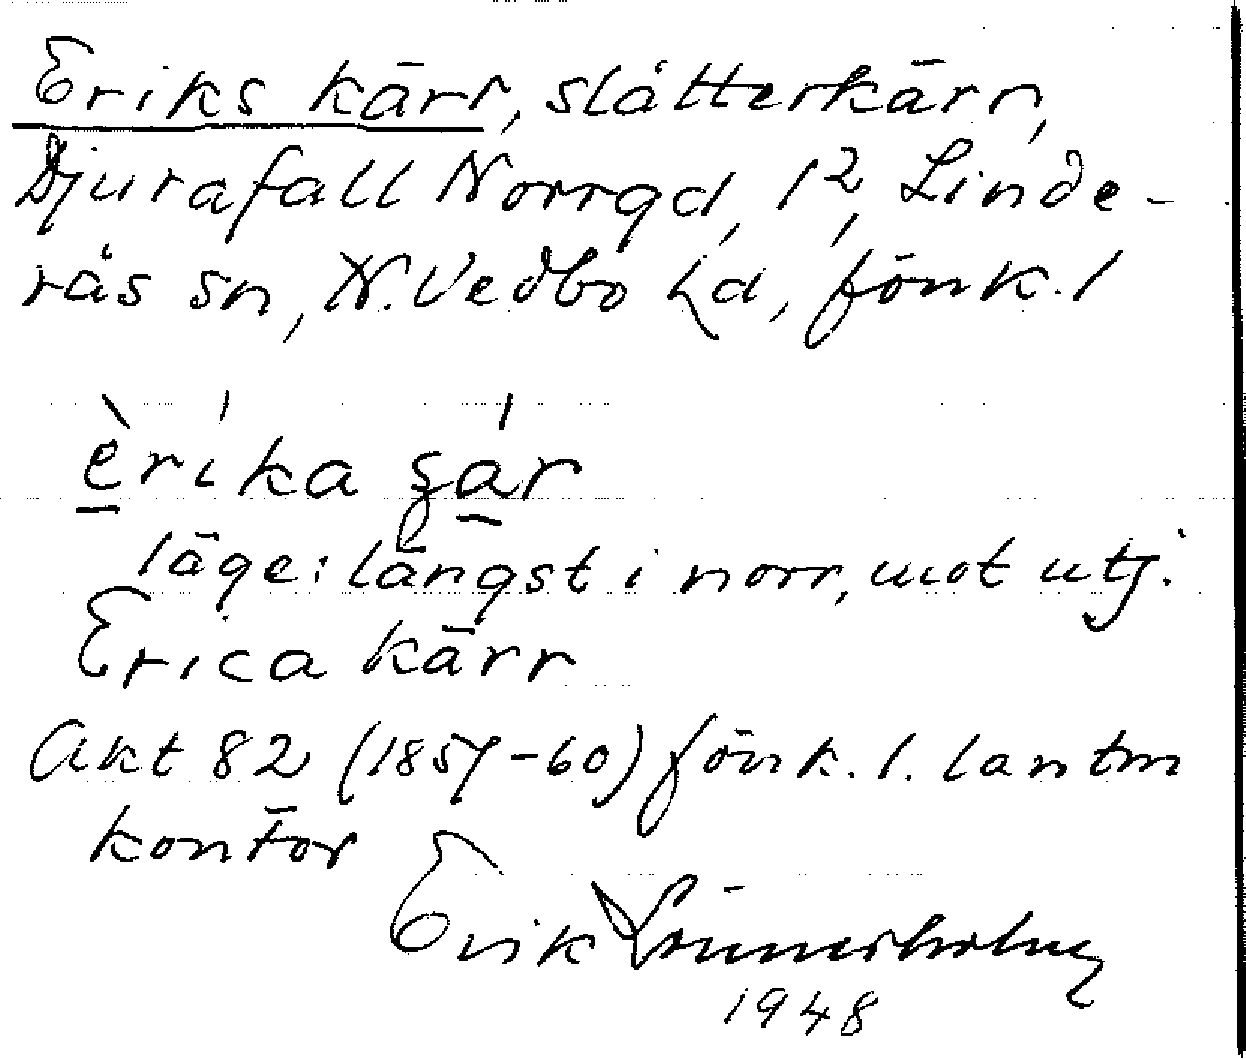 Eriks kärr, slåtterkärr,
Djurafall Norrgd, 1², Linde-
rås sn, N. Vedbo hd, Jönk. l
èrika ʂár
läge: längst i norr, mot utj.
Erica kärr
Akt 82 (1857-60) Jönk. l. lantm
kontor
Erik Lönnerholm
1948